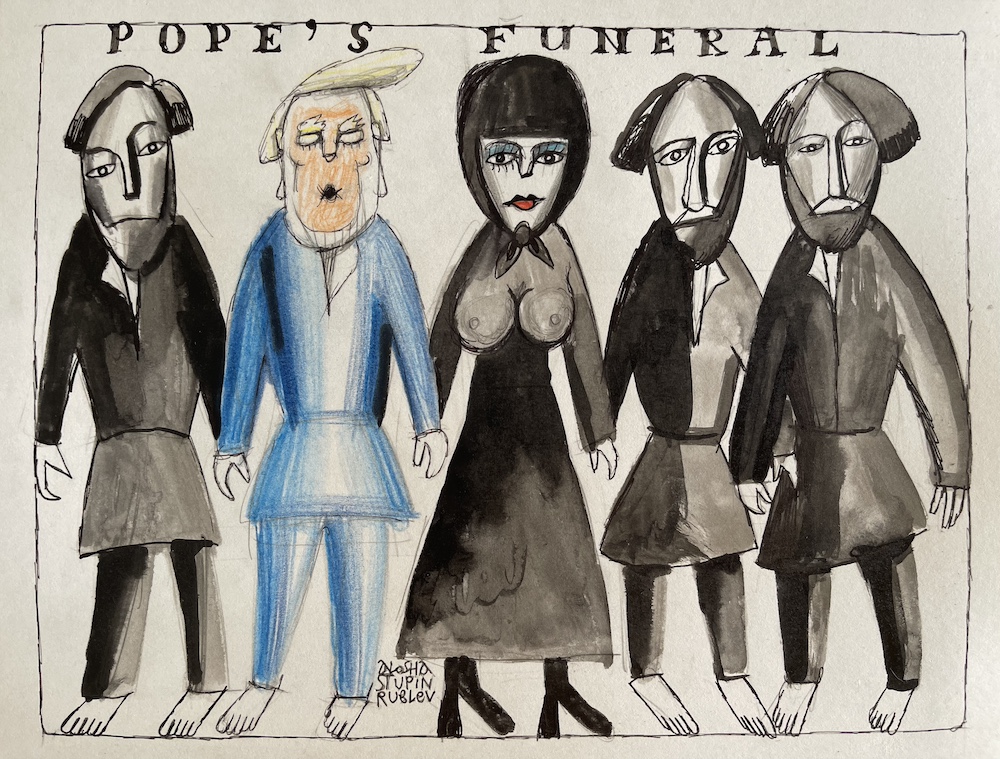 POPE'S FUNERAL
ALOSHA
STUPIN
RUBLEV